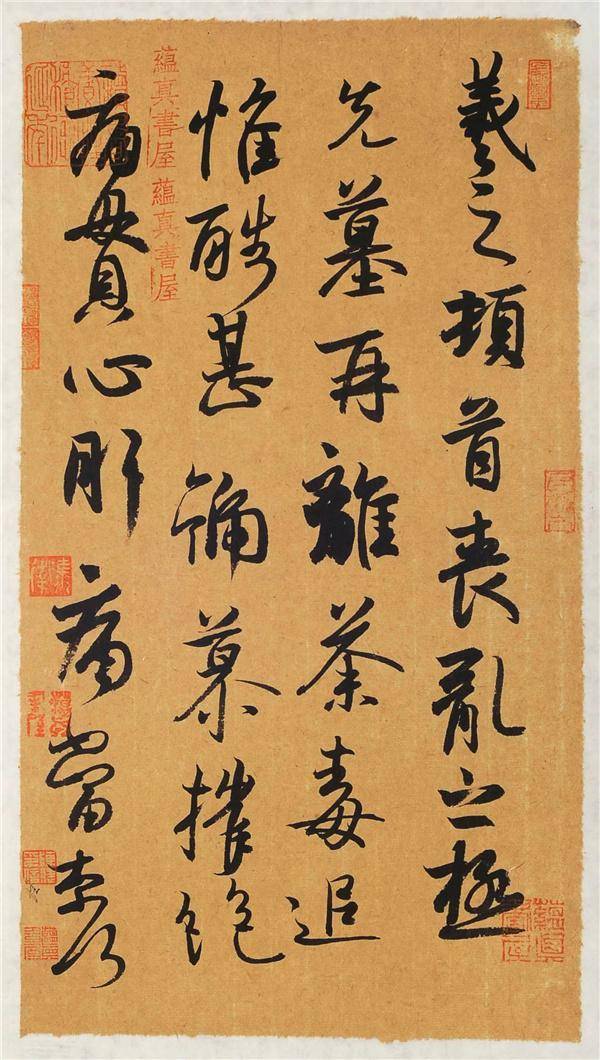 羲之頓首喪亂之極
先墓再離荼毒追
惟酷甚號慕摧絕
蘊真書屋蘊真書屋
痛貫心肝痛當奈何